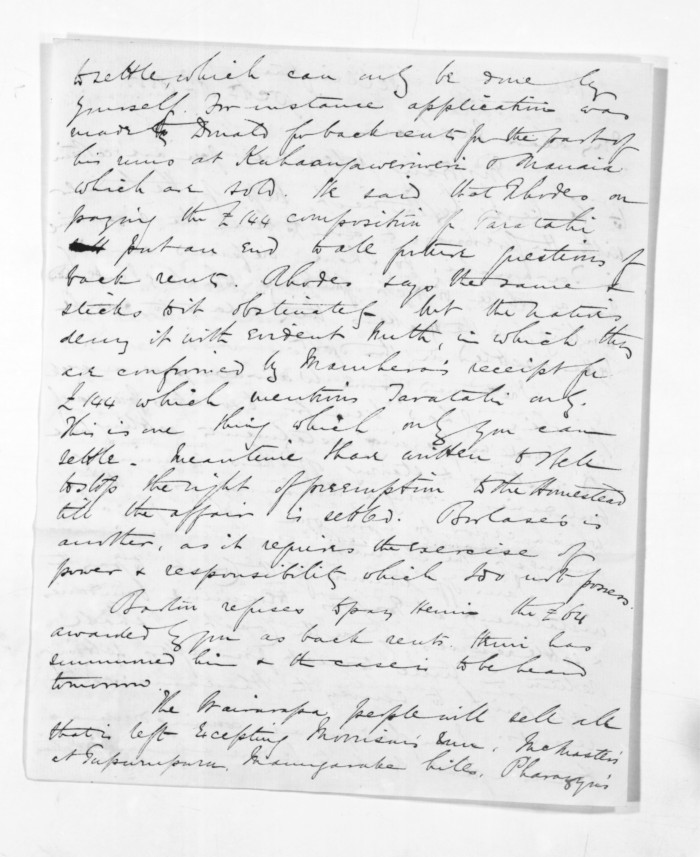 to settle, which can only be done by
yourself. For instance application was
made to Donald for back rents for the part of
his runs at Kuhaangawariwari & Manaia
which are sold. He said that Rhodes on
paying the £144 composition for Taratahi
put an end to all future questions of
back rents. Rhodes says the same &
sticks to it obstinately but the natives
deny it with evident truth, in which they
are confirmed by Manihera's receipt for
£144 which mentions Taratahi only.
This is one thing which only you can
settle. Meantime I have written to
to stop the right of preemption to the Homestead
till the affair is settled. Borlase's is
another, as it requires the exercise of
power & responsibility which I do not possess.
Barton refuses to pay Hemi the £64
awarded by you as back rents. Hemi has
summoned him & the case is to be heard
tomorrow.
The Wairarapa people will sell all
that is left excepting Morrison's run, McMaster's
at Tupurupuru, Maungaraki hills, Pharazyn's